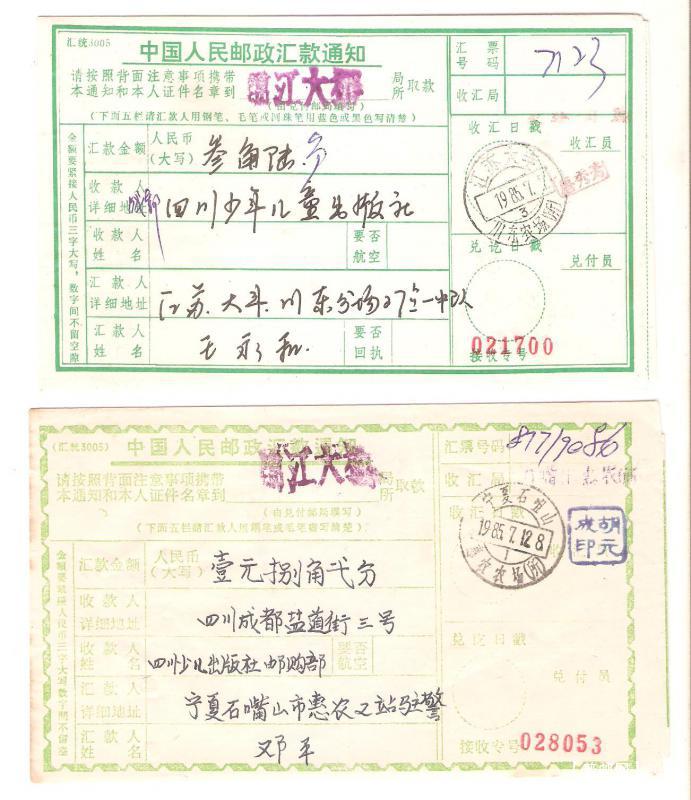 汇统3005
中国人民邮政汇款通知
请按照背面注意事项携带
本通知和本人证件名章到
江大桥
局所 取款
(由兑付邮局填写)
(下面五栏请汇款人用钢笔、毛笔或圆珠笔用蓝色或黑色写清楚)
金额要紧接人民币三字大写,数字间不留空隙
汇款金额
人民币
(大写)
叁角陆分
收款人
详细地址
成都四川少年儿童出版社
收款人
姓名
要否
航空
汇款人
详细地址
江苏.大丰.川东分场
汇款人
姓名
王永和.
要否
回执
汇票
号码
7123
收汇局
收汇日戳
收汇员
江苏大丰
1985.7.
3
川东农场(所)
兑讫日戳
兑付员
021700
接收专号
(汇统3005)
中国人民邮政汇款通知
请按照背面注意事项携带
本通知和本人证件名章到
江大桥
局所 取款
(由兑付邮局填写)
(下面五栏请汇款人用钢笔或毛笔填写清楚)
金额要紧接人民币三字大写数字间不留空隙
汇款金额
人民币
(大写)
壹元捌角弍分
收款人
详细地址
四川成都盐道街三号
收款人
姓名
四川少儿出版社邮购部
要否
航空
汇款人
详细地址
宁夏石嘴山市惠农又站驻警
汇款人
姓名
邓平
汇票号码
877/9086
收汇局
收汇日戳
宁夏石嘴山
1985.7.12.8
1
农场(所)
胡元成印
兑讫日戳
兑付员
接收专号
028053